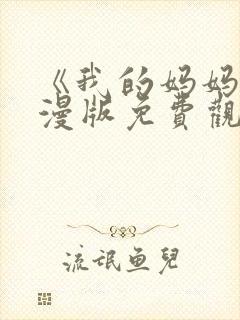 《我的妈妈
漫版免費觀
流氓鱼兒